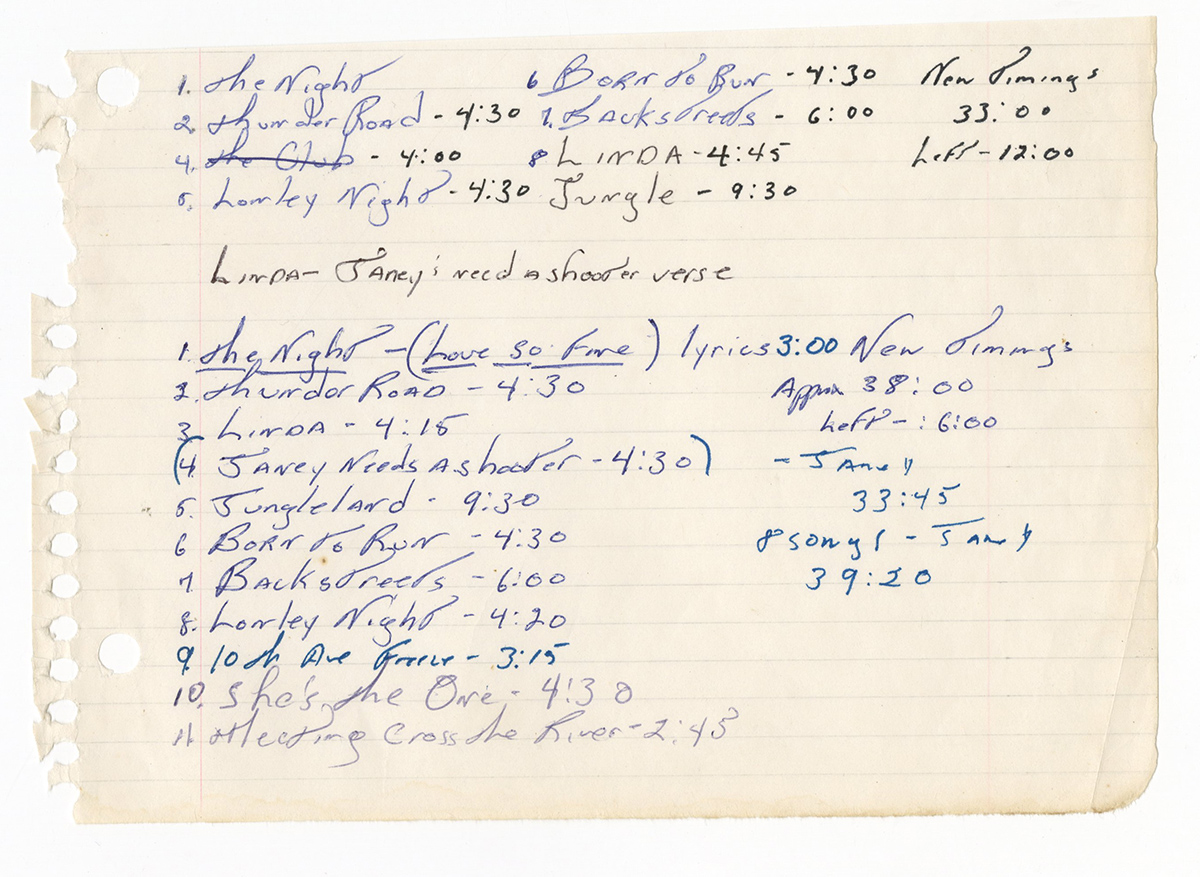 1. the Night 6 Born to Run - 4:30 New Timings
2. thunder Road - 4:30 7. Backstreets - 6:00 33:00
4. the Club - 4:00 8 LINDA - 4:45 Left - 12:00
5. Lonley Night - 4:30 Jungle - 9:30
LINDA - JANey's need A shooter verse
1. the Night - (Love So Fine) lyrics 3:00 New Timings
2. thunder Road - 4:30 Approx 38:00
3 LINDA - 4:15 Left - :6:00
(4 JANEY Needs A shooter - 4:30) - JANEY
5. Jungleland - 9:30 33:45
6 Born to Run - 4:30 8 songs - JANEY
7 BACKstreets - 6:00 39:20
8. Lonley Night - 4:20
9. 10th Ave Freeze - 3:15
10. She's the One - 4:30
11 Meeting Cross the River - 2:45